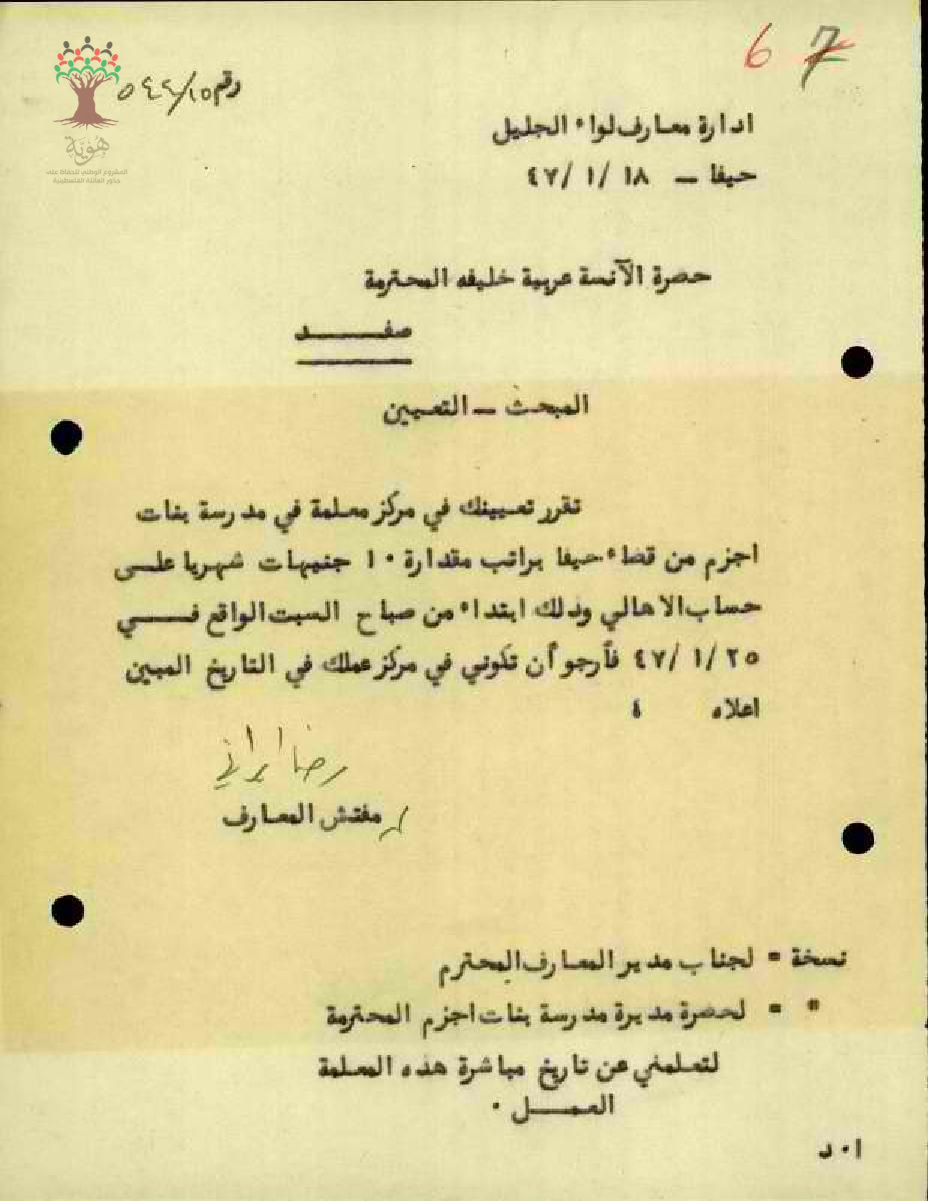 6 7
رقم ٥٤٤/١٥
هُوِيَّة
المشروع الوطني للحفاظ على
جذور العائلة الفلسطينية
ادارة معارف لواء الجليل
حيفا – ١٨ /١ /٤٧
حضرة الآنسة عربية خليفه المحترمة
صفـــــد
المبحث – التعيين
تقرر تعيينك في مركز معلمة في مدرسة بنات
اجزم من قضاء حيفا براتب مقدارة ١٠ جنيهات شهريا علـى
حساب الاهالي وذلك ابتداء من صباح السبت الواقع فـــي
٢٥ /١ /٤٧ فأرجو أن تكوني في مركز عملك في التاريخ المبين
اعلاه ٤
رضا ايراني
مفتش المعارف
نسخة = لجناب مدير المعارف المحترم
" = لحضرة مديرة مدرسة بنات اجزم المحترمة
لتعلمني عن تاريخ مباشرة هذه المعلمة
العمـــل ٠
ا ٠ د